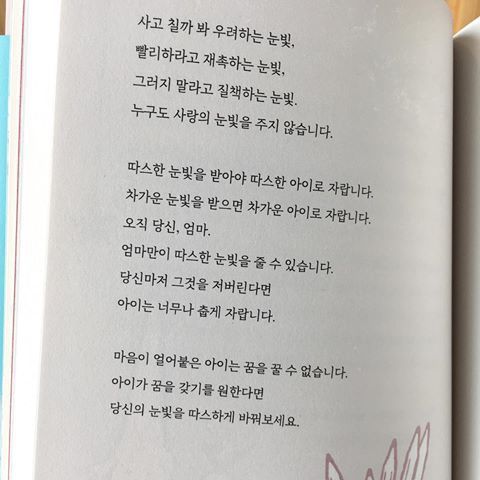 사고 칠까 봐 우려하는 눈빛,
빨리하라고 재촉하는 눈빛,
그러지 말라고 질책하는 눈빛.
누구도 사랑의 눈빛을 주지 않습니다.
따스한 눈빛을 받아야 따스한 아이로 자랍니다.
차가운 눈빛을 받으면 차가운 아이로 자랍니다.
오직 당신, 엄마.
엄마만이 따스한 눈빛을 줄 수 있습니다.
당신마저 그것을 저버린다면
아이는 너무나 춥게 자랍니다.
마음이 얼어붙은 아이는 꿈을 꿀 수 없습니다.
아이가 꿈을 갖기를 원한다면
당신의 눈빛을 따스하게 바꿔보세요.